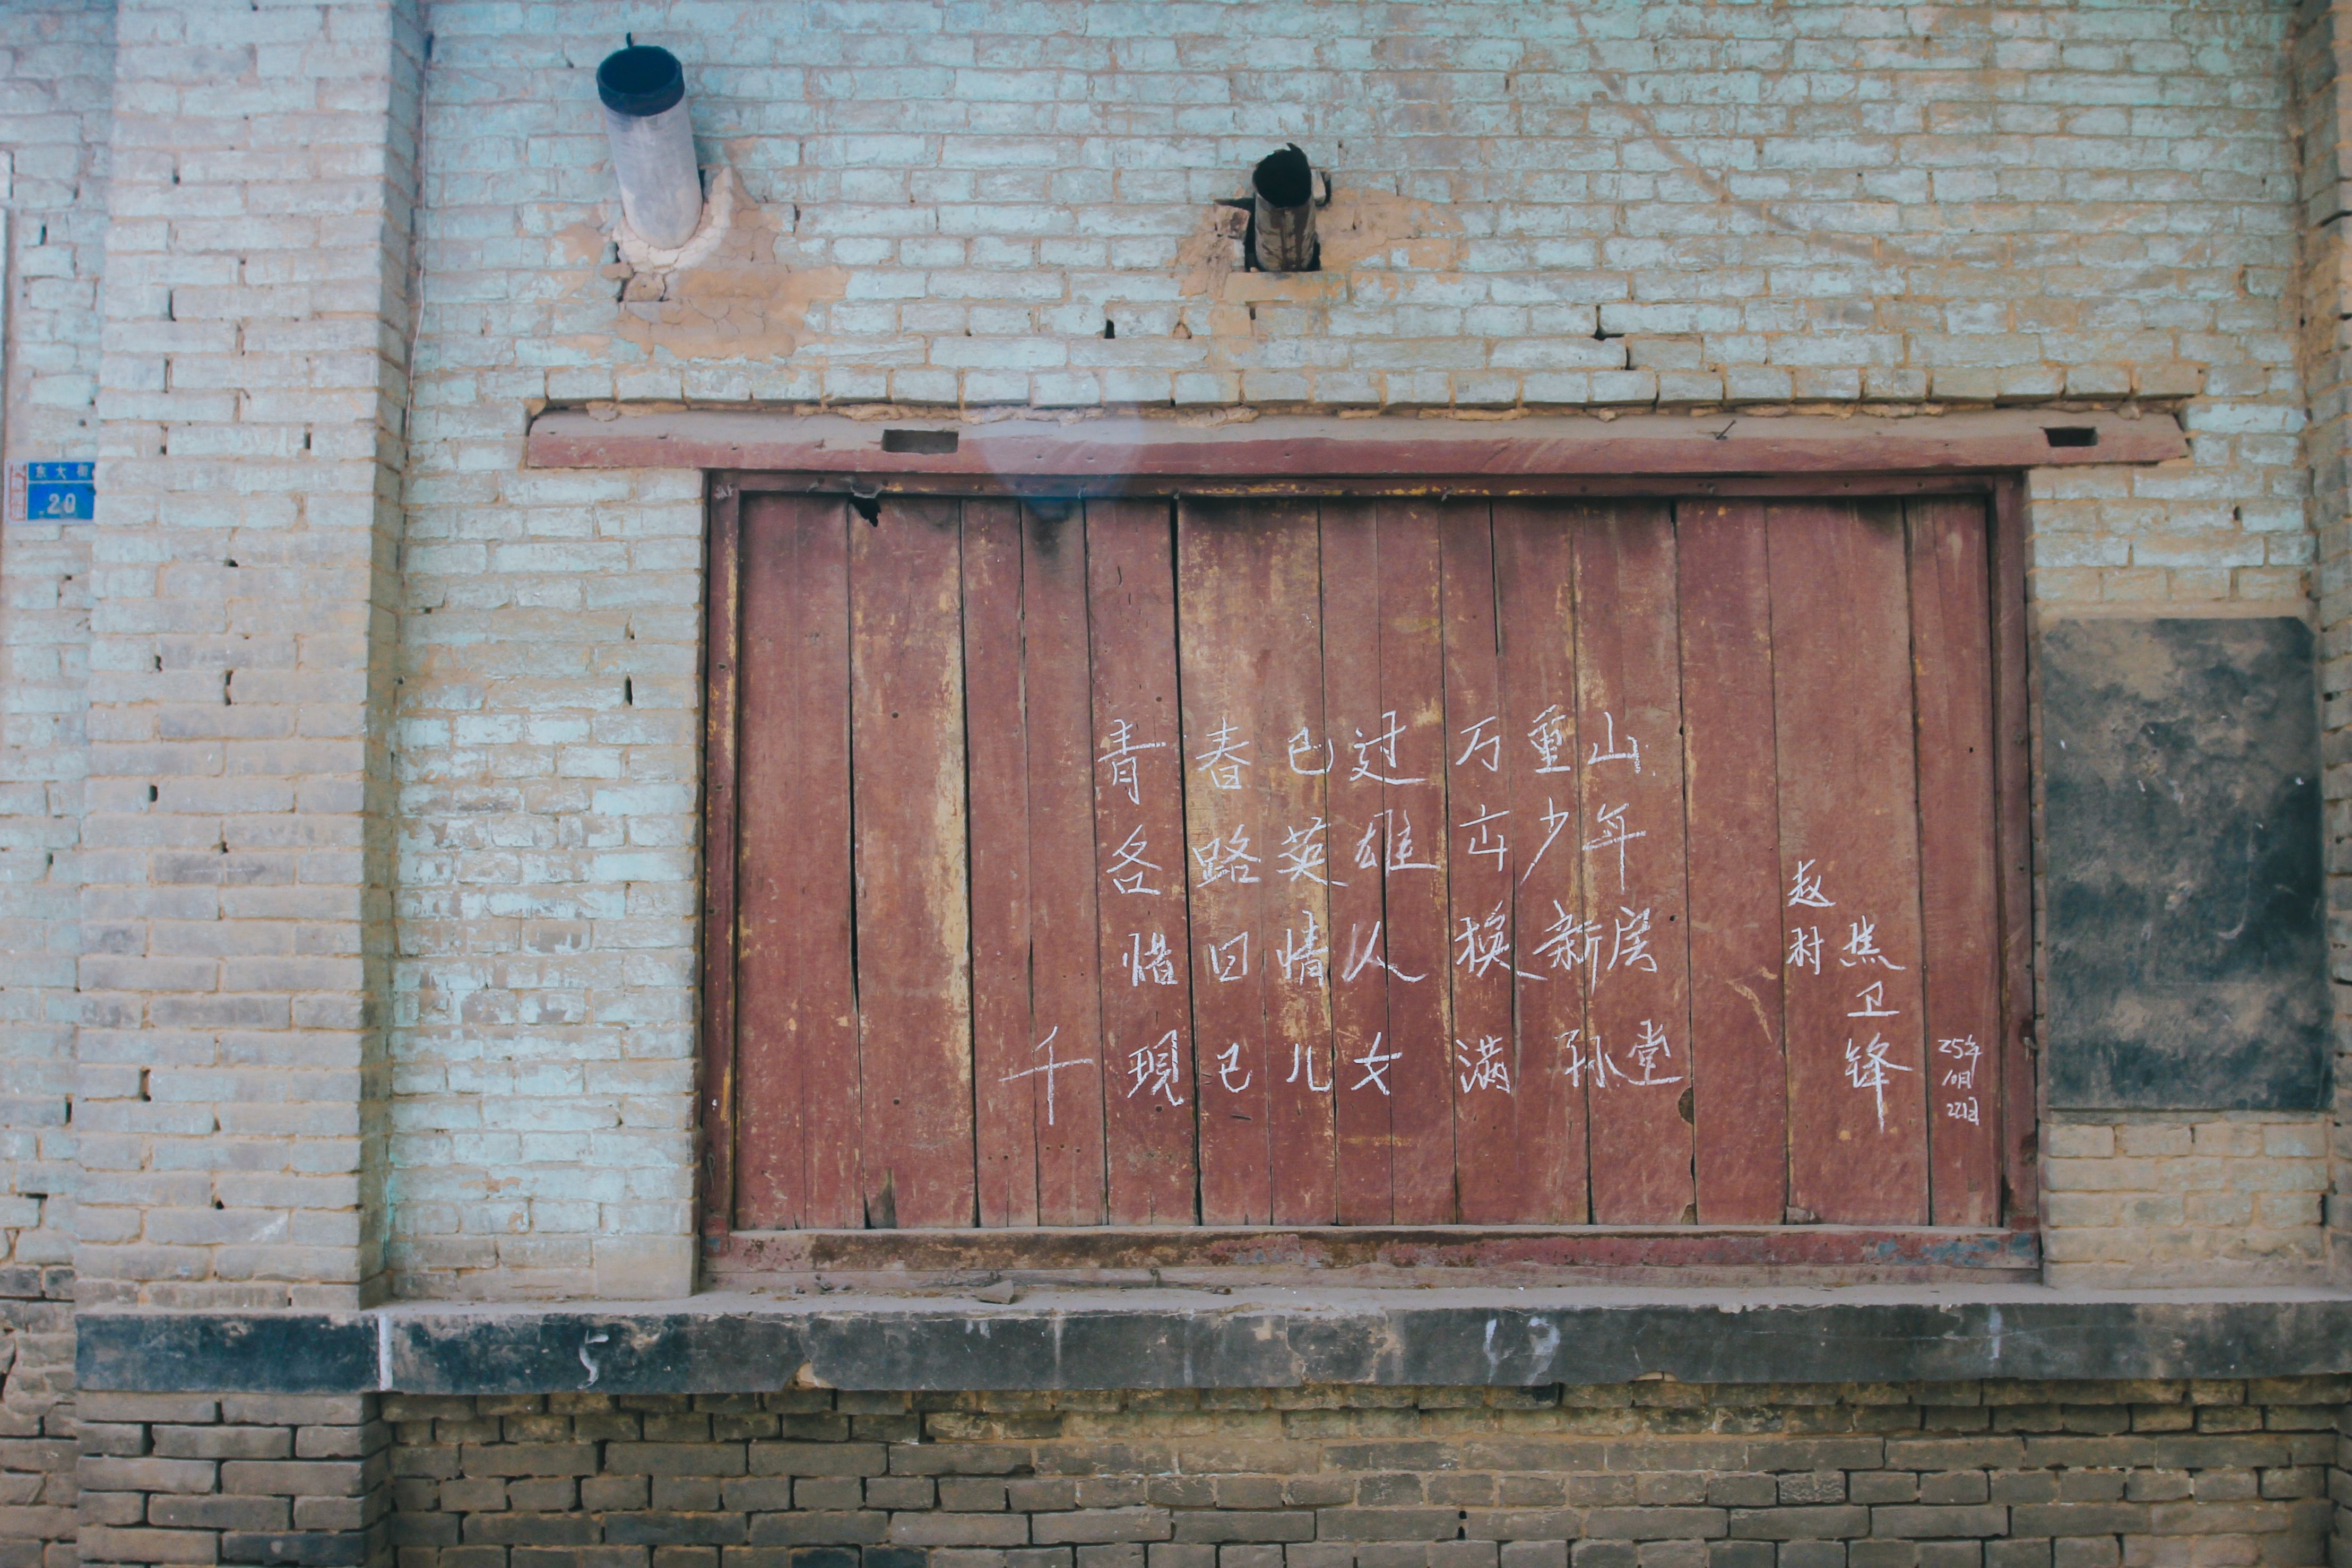 东大街
20
青春已过万重山
各路英雄屯少年
惜日情人换新房
千现已儿女满孙堂
赵村
焦卫锋
25年
10月
22日